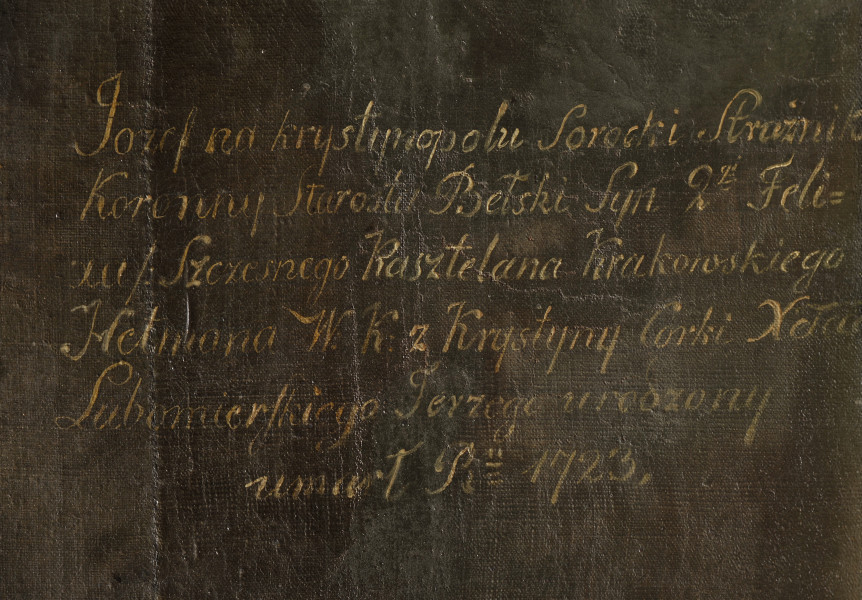 Jozef na krystynopolu Porocki Strażnik
Koronny Starosta Bełski Syn 2gi Feli=
xa f. Szczesnego Kasztelana Krakowskiego
Hetmana W. K. z Krystyny Corki Xcia
Lubomierskiego Jerzego urodzony
umarł R== 1723.